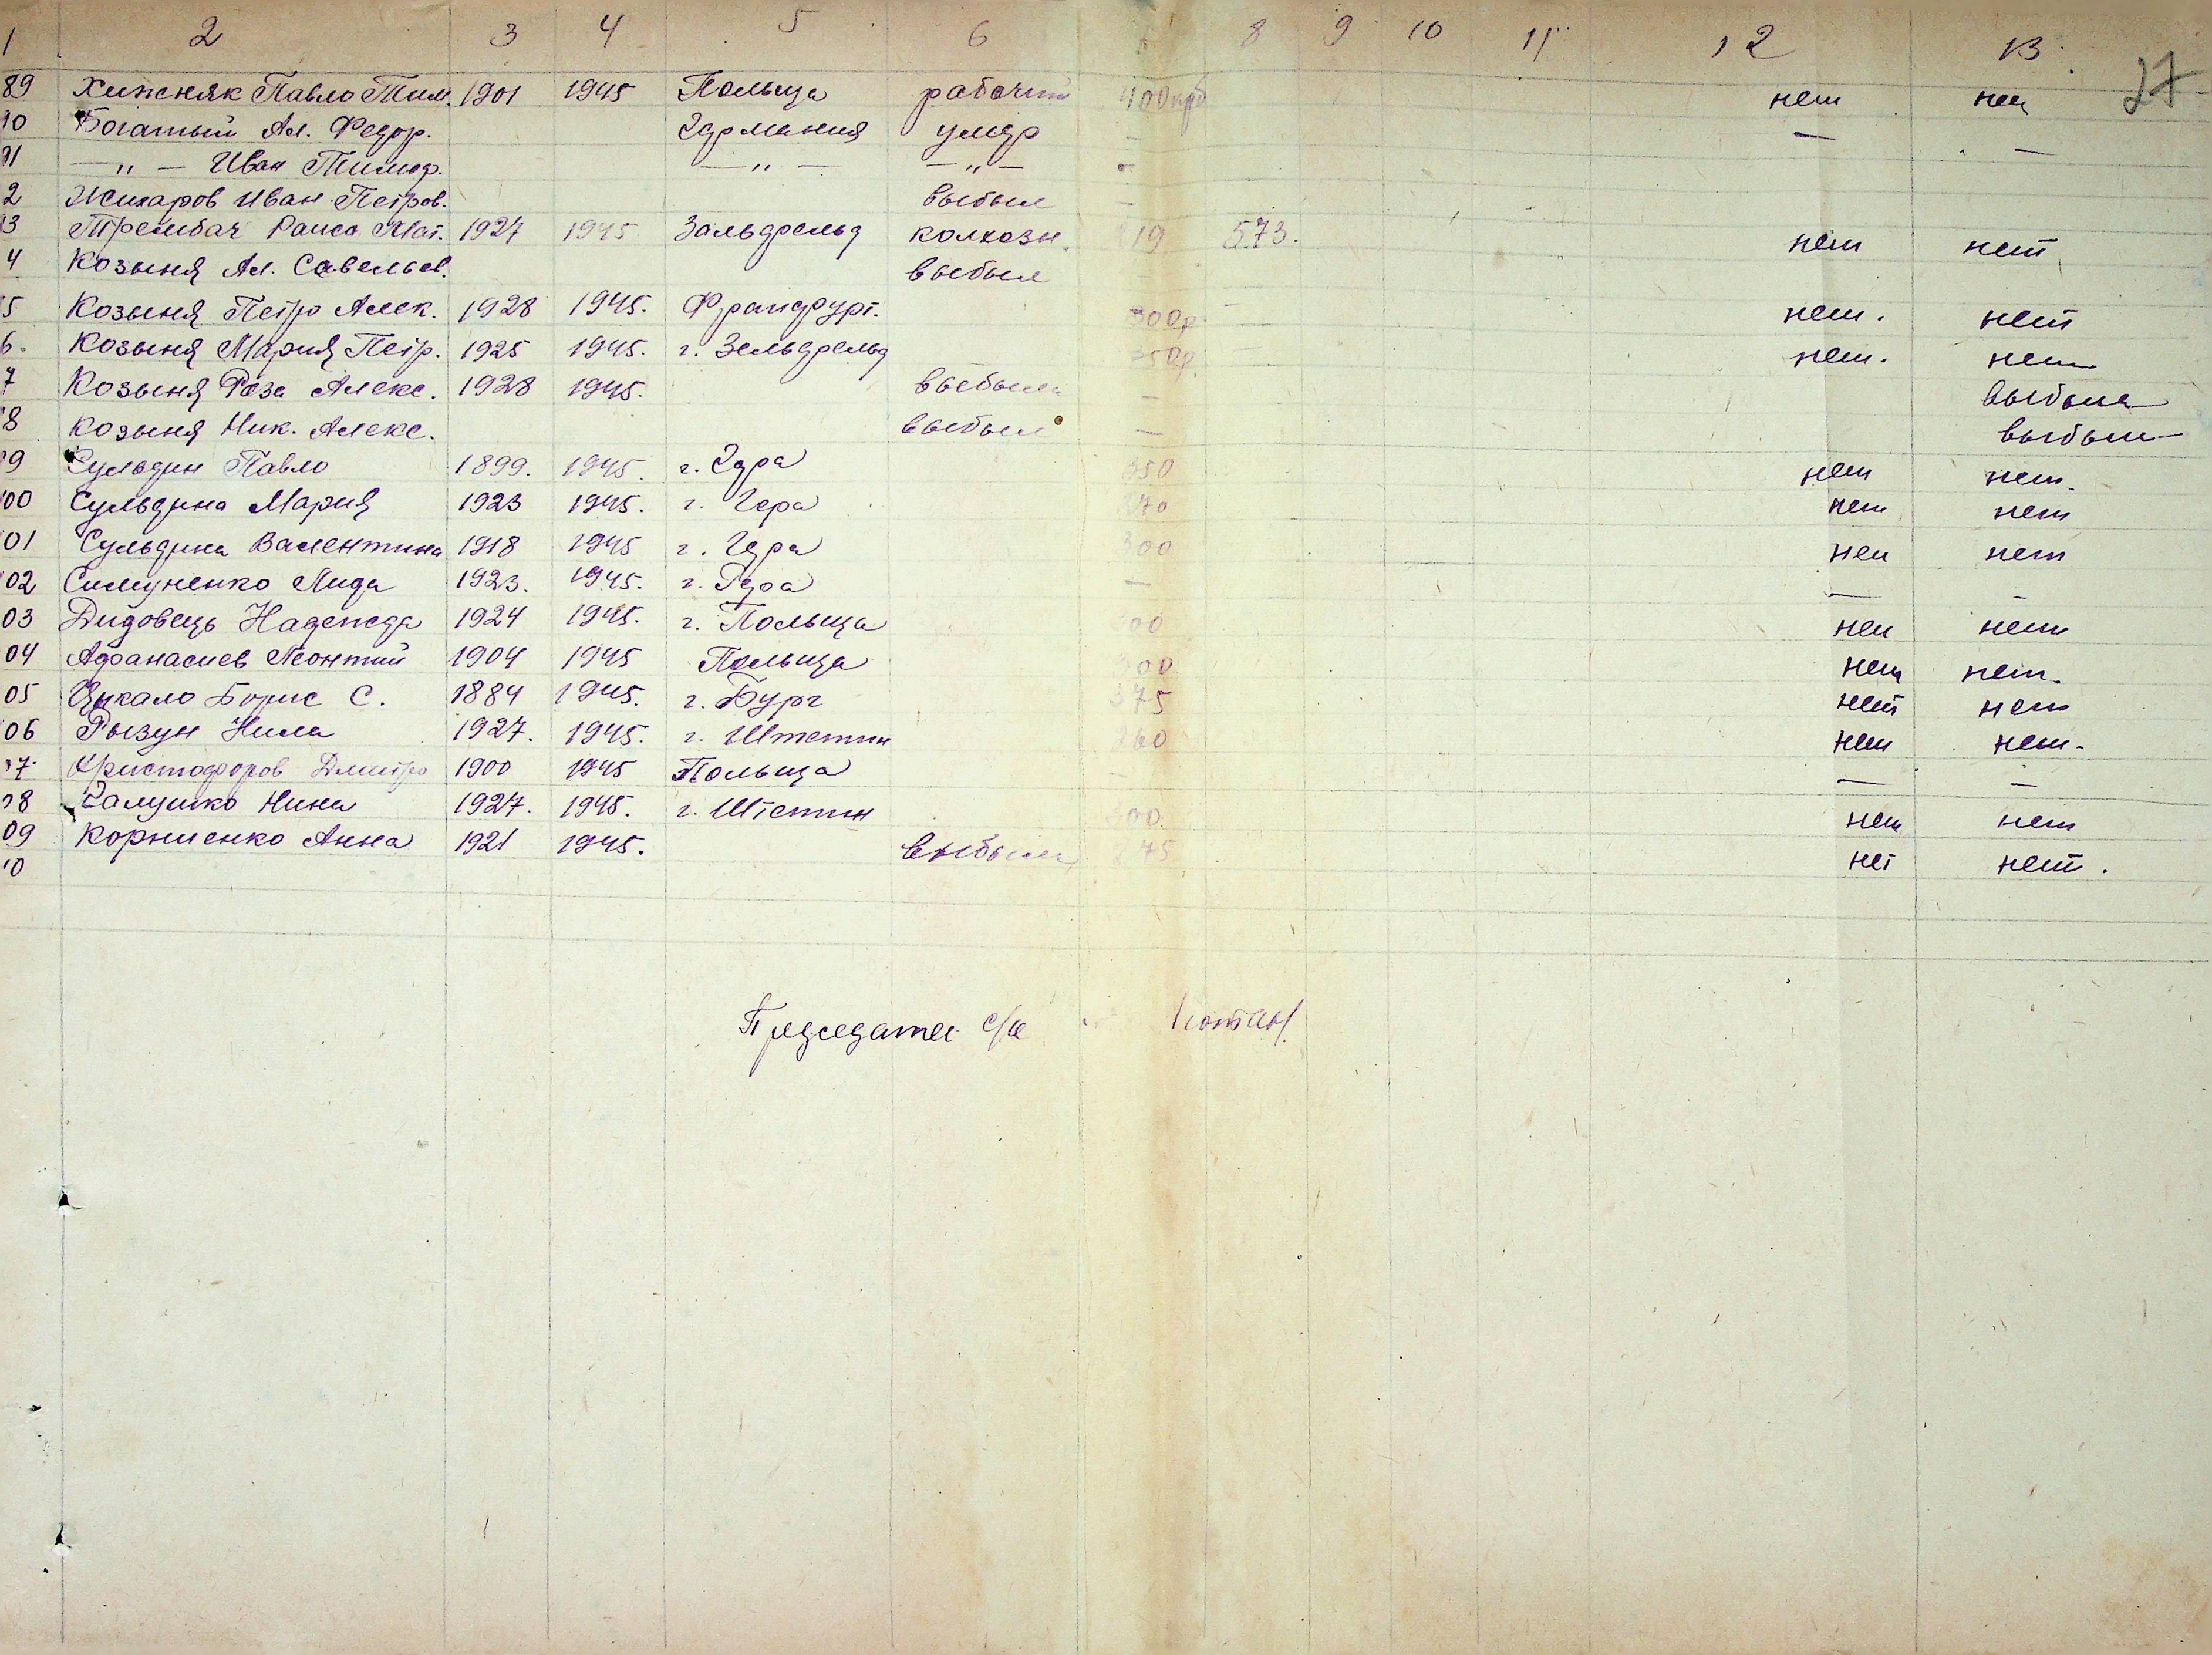 1 2 3 4 5 6 8 9 10 11 12 13
27
89 Хижняк Павло Тим. 1901 1945 Польща рабочий 400крб нет нет
90 Богатый Ал. Федор. Германия умер — — —
91 —„— Иван Тимоф. —„— —„— -
2 Жигаров Иван Петров. выбыл —
93 Трембач Раиса Мат. 1927 1945 Зальдфельд колхозн. 19 573. нет нет
4 Козыня Ал. Савельев. выбыл
5 Козыня Петро Алек. 1928 1945. Франфурт. 300р — нет. нет
6. Козыня Мария Петр. 1925 1945. г. Зельдфельд 350р. — нет. нет
7 Козыня Роза Алекс. 1928 1945. выбыла — выбыла
8 Козыня Ник. Алекс. выбыл — выбыл
99 Сульдин Павло 1899. 1945. г. Гера 350 нет нет.
100 Сульдина Мария 1923 1945. г. Гера 270 нет нет
01 Сульдина Валентина 1918 1945 г. Гера 300 нет нет
02 Симуненко Лида 1923. 1945. г. Гера — — —
03 Дидовець Надежда 1924 1945. г. Польща 00 нет нет
04 Афанасиев Леонтий 1904 1945 Польща 300 нет нет.
05 Цыкало Борис С. 1884 1945. г. Бург 375 нет нет
06 Рызун Нила 1927. 1945. г. Штетин 260 нет нет.
07. Христофоров Дмитро 1900 1945 Польща — —
08 Галушко Нина 1927. 1945. г. Штетин 300. нет нет
09 Корниенко Анна 1921 1945. выбыла 275 нет нет.
10
Председатель с/с